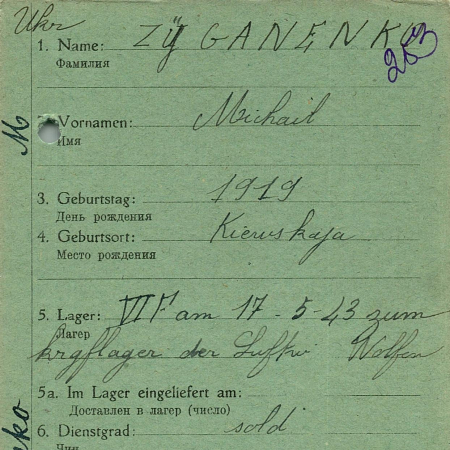 Ukr
1. Name: ZÿGANENKO
Фамилия
263
2. Vornamen: Michail
Имя
M
3. Geburtstag: 1919
День рождения
4. Geburtsort: Kiewskaja
Место рождения
5. Lager: VII F am 17-5-43 zum
Лагер
krgflager der Luftw Wolfen
5a. Im Lager eingeliefert am:
Доставлен в лагер (число)
6. Dienstgrad: sold
Чин
nko